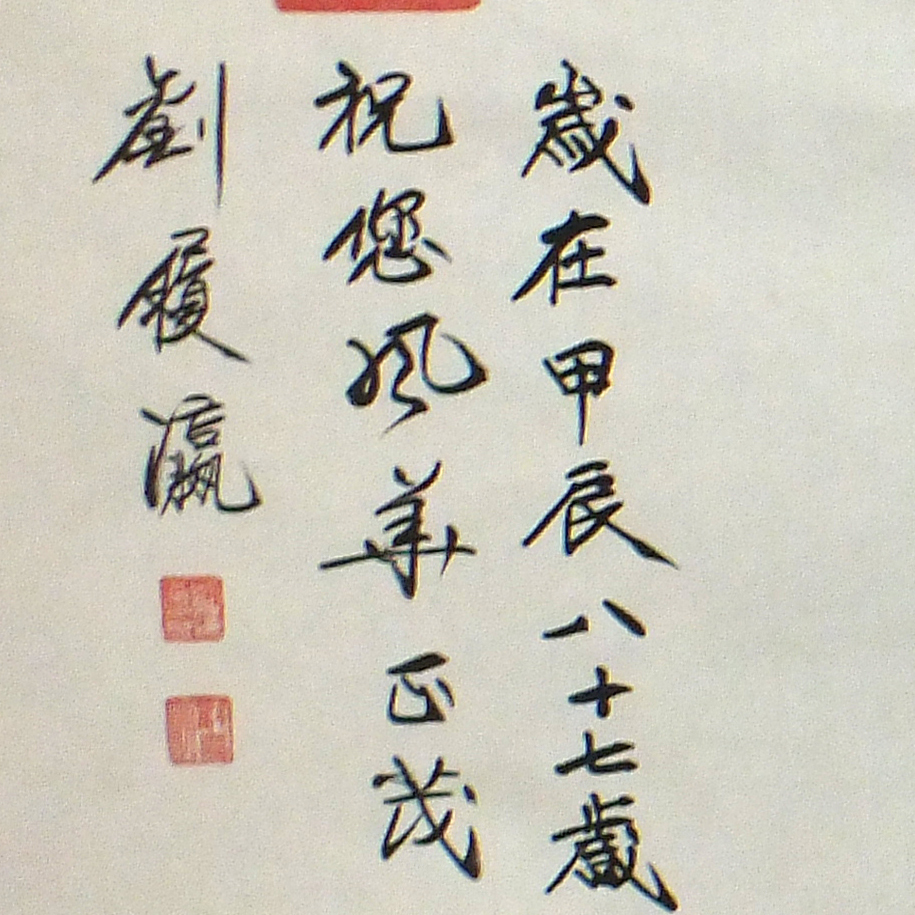 歲在甲辰八十七歲
祝您風華正茂
劉履瀛